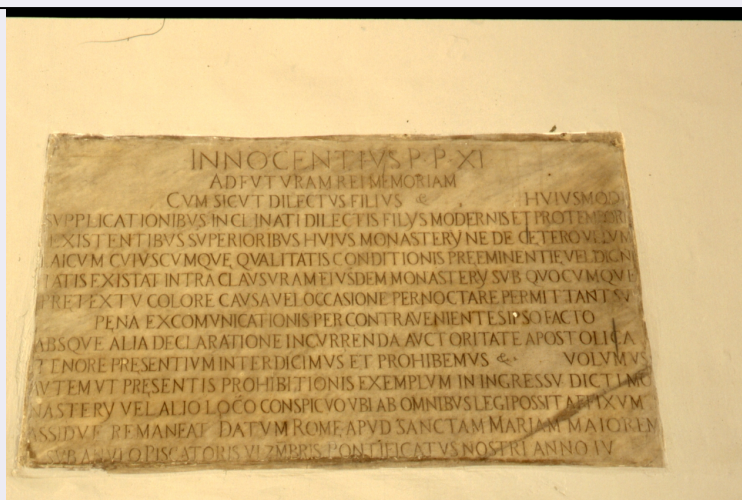 INNOCENTIVS P·P·XI
AD FVTVRAM REI MEMORIAM
CVM SICVT DILECTVS FILIVS &c HVIVSMODI
SVPPLICATIONIBVS INCLINATI DILECTIS FILYS MODERNIS ET PROTEMPORE
EXISTENTIBVS SVPERIORIBVS HVIVS MONASTERY NE DE CETERO VLLVM
LAICVM CVIVSCVMQVE QVALITATIS CONDITIONIS PREEMINENTIE VEL DIGNI
TATIS EXISTAT INTRA CLAVSVRAM EIVSDEM MONASTERY SVB QVOCVMQVE
PRETEXTV COLORE CAVSA VEL OCCASIONE PERNOCTARE PERMITTANT SV
PENA EXCOMVNICATIONIS PER CONTRAVENIENTES IPSO FACTO
ABSQVE ALIA DECLARATIONE INCVRRENDA AVCTORITATE APOSTOLICA
TENORE PRESENTIVM INTERDICIMVS ET PROHIBEMVS &c· VOLVMVS
AVTEM VT PRESENTIS PROHIBITIONIS EXEMPLVM IN INGRESSV DICTI MO
NASTERY VEL ALIO LOCO CONSPICVO VBI AB OMNIBVS LEGI POSSIT AFFIXVM
ASSIDVE REMANEAT DATVM ROME APVD SANCTAM MARIAM MAIOREM
SVB ANVLO PISCATORIS VI ZMBRIS PONTIFICATVS NOSTRI ANNO IV